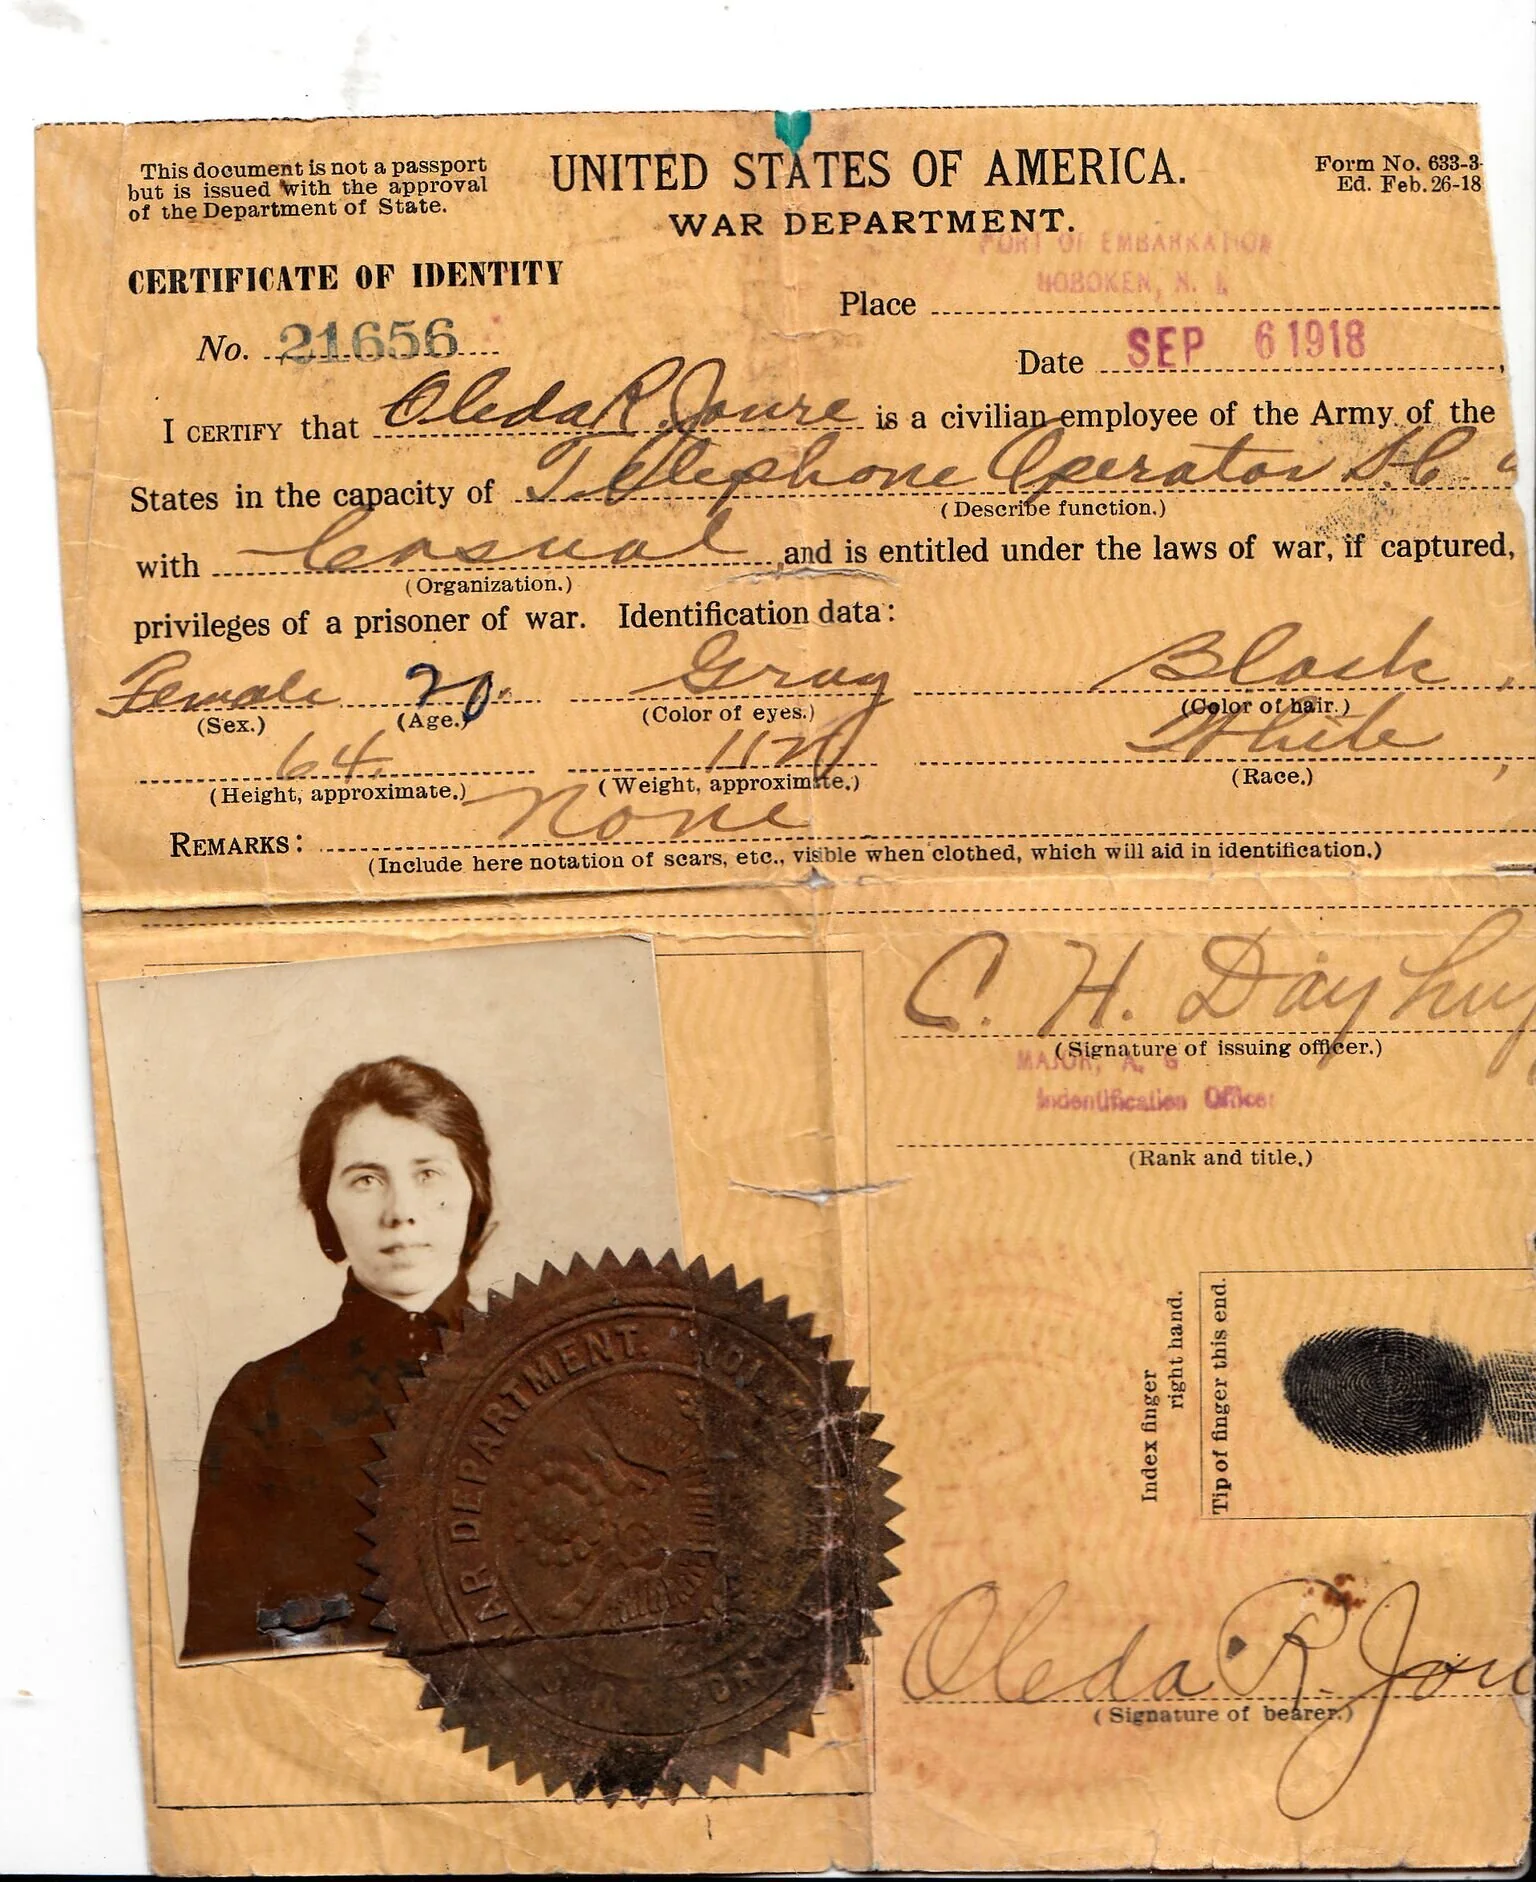 This document is not a passport
but is issued with the approval
of the Department of State.
UNITED STATES OF AMERICA.
WAR DEPARTMENT.
Form No. 633-3-
Ed. Feb. 26-18
CERTIFICATE OF IDENTITY
PORT OF EMBARKATION
HOBOKEN, N. J.
Place
No. 21656
Date SEP 6 1918
I CERTIFY that Oleda R. Joure is a civilian employee of the Army of the
States in the capacity of Telephone Operator S.C
(Describe function.)
with Casual and is entitled under the laws of war, if captured,
(Organization.)
privileges of a prisoner of war. Identification data:
Female 20. Gray Black,
(Sex.) (Age.) (Color of eyes.) (Color of hair.)
64. 112 White,
(Height, approximate.) (Weight, approximate.) (Race.)
REMARKS: None
(Include here notation of scars, etc., visible when clothed, which will aid in identification.)
C. H. Dayhu
(Signature of issuing officer.)
MAJOR, A. G
Indentification Officer
(Rank and title.)
WAR DEPARTMENT.
Index finger
right hand.
Tip of finger this end.
Oleda R. Jou
(Signature of bearer.)